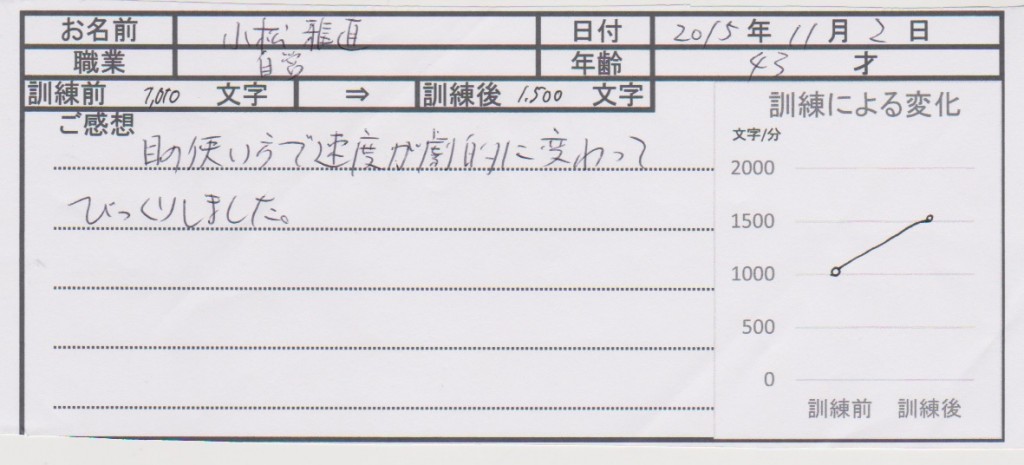 お名前 小松 龍直 日付 2015年 11月 2日
職業 自営 年齢 43 才
訓練前 1,010 文字 ⇒ 訓練後 1.500 文字
ご感想
目の使い方で速度が劇的に変わって
びっくりしました。
訓練による変化
文字/分
2000
1500
1000
500
0
訓練前 訓練後